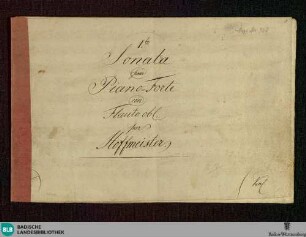 1te
Sonata
Piano-Forte
Flauto obl.
per
Hoffmeister
BLB BADISCHE
LANDESBIBLIOTHEK
Baden-Württemberg